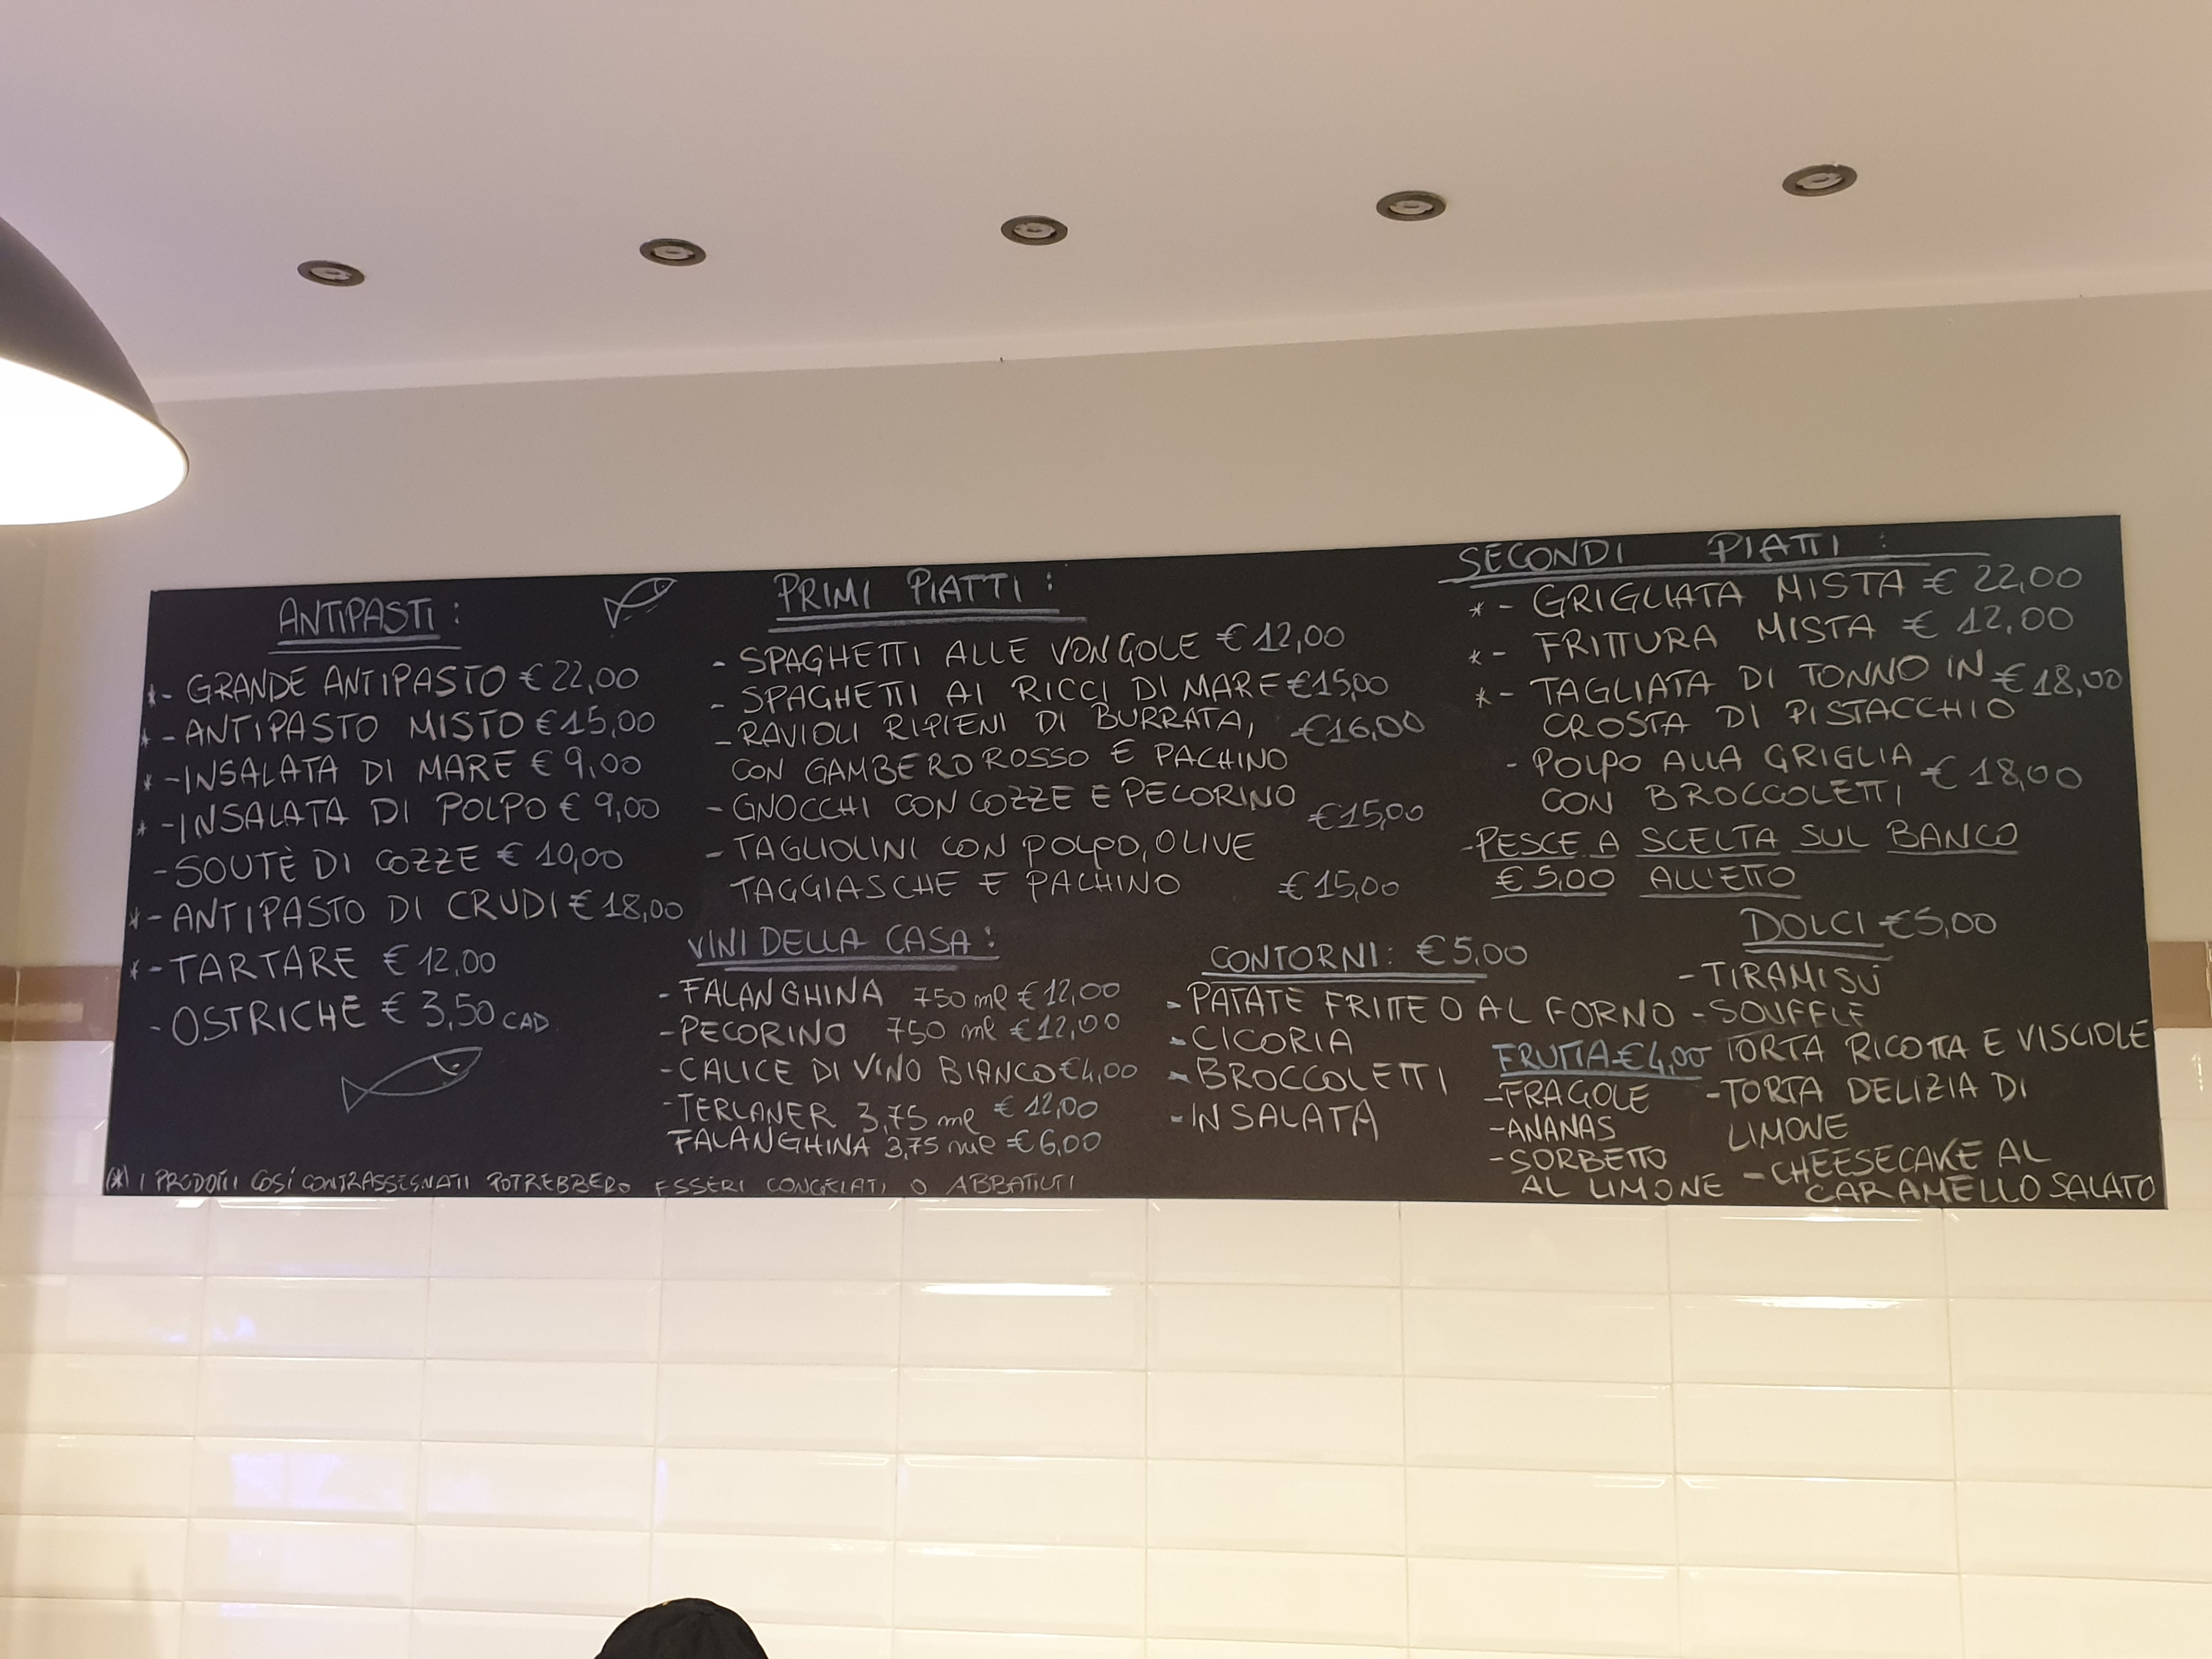 ANTIPASTI:
*- GRANDE ANTIPASTO € 22,00
*- ANTIPASTO MISTO € 15,00
*- INSALATA DI MARE € 9,00
*- INSALATA DI POLPO € 9,00
- SOUTÈ DI COZZE € 10,00
*- ANTIPASTO DI CRUDI € 18,00
*- TARTARE € 12,00
- OSTRICHE € 3,50 CAD
PRIMI PIATTI:
- SPAGHETTI ALLE VONGOLE € 12,00
- SPAGHETTI AI RICCI DI MARE €15,00
- RAVIOLI RIPIENI DI BURRATA, €16,00
CON GAMBERO ROSSO E PACHINO
- GNOCCHI CON COZZE E PECORINO
€15,00
- TAGLIOLINI CON POLPO, OLIVE
TAGGIASCHE E PACHINO €15,00
VINI DELLA CASA:
- FALANGHINA 750 ml € 12,00
- PECORINO 750 ml € 12,00
- CALICE DI VINO BIANCO €4,00
- TERLANER 3,75 ml € 12,00
FALANGHINA 3,75 ml € 6,00
(*) I PRODOTTI COSÍ CONTRASSEGNATI POTREBBERO ESSERI CONGELATI O ABBATTUTI
CONTORNI: €5,00
- PATATE FRITTE O AL FORNO
- CICORIA
- BROCCOLETTI
- INSALATA
SECONDI PIATTI:
*- GRIGLIATA MISTA € 22,00
*- FRITTURA MISTA € 12,00
*- TAGLIATA DI TONNO IN € 18,00
CROSTA DI PISTACCHIO
- POLPO ALLA GRIGLIA
CON BROCCOLETTI € 18,00
- PESCE A SCELTA SUL BANCO
€ 5,00 ALL'ETTO
FRUTTA €4,00
- FRAGOLE
- ANANAS
- SORBETTO
AL LIMONE
DOLCI €5,00
- TIRAMISÙ
- SOUFFLÈ
TORTA RICOTTA E VISCIOLE
- TORTA DELIZIA DI
LIMONE
- CHEESECAKE AL
CARAMELLO SALATO